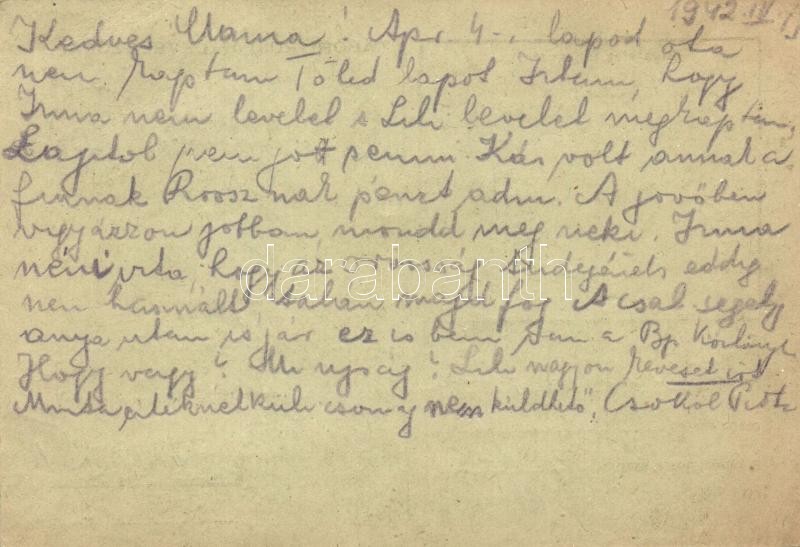 1942 IV
Kedves Mama! Apr 4-i lapod óta
nem kaptam Tőled lapot. Irtam, hogy
Irma néni levelét s Lili levelét megkaptam,
Lajtól nem jött semmi. Kár volt annak a
fiunak Roosznak pénzt adni. A jövőben
vigyázzon jobban, mondd meg neki. Irma
néni irta, hogy az orvosság eddig
nem használt, talán majd fog. A csal. segély
anya után is jár ez is benn van a Bp. Közlöny
Hogy vagy? Mi ujság? Lili nagyon keveset irt
Minta értéknélküli csomag nem küldhető, Csókol
darabanth